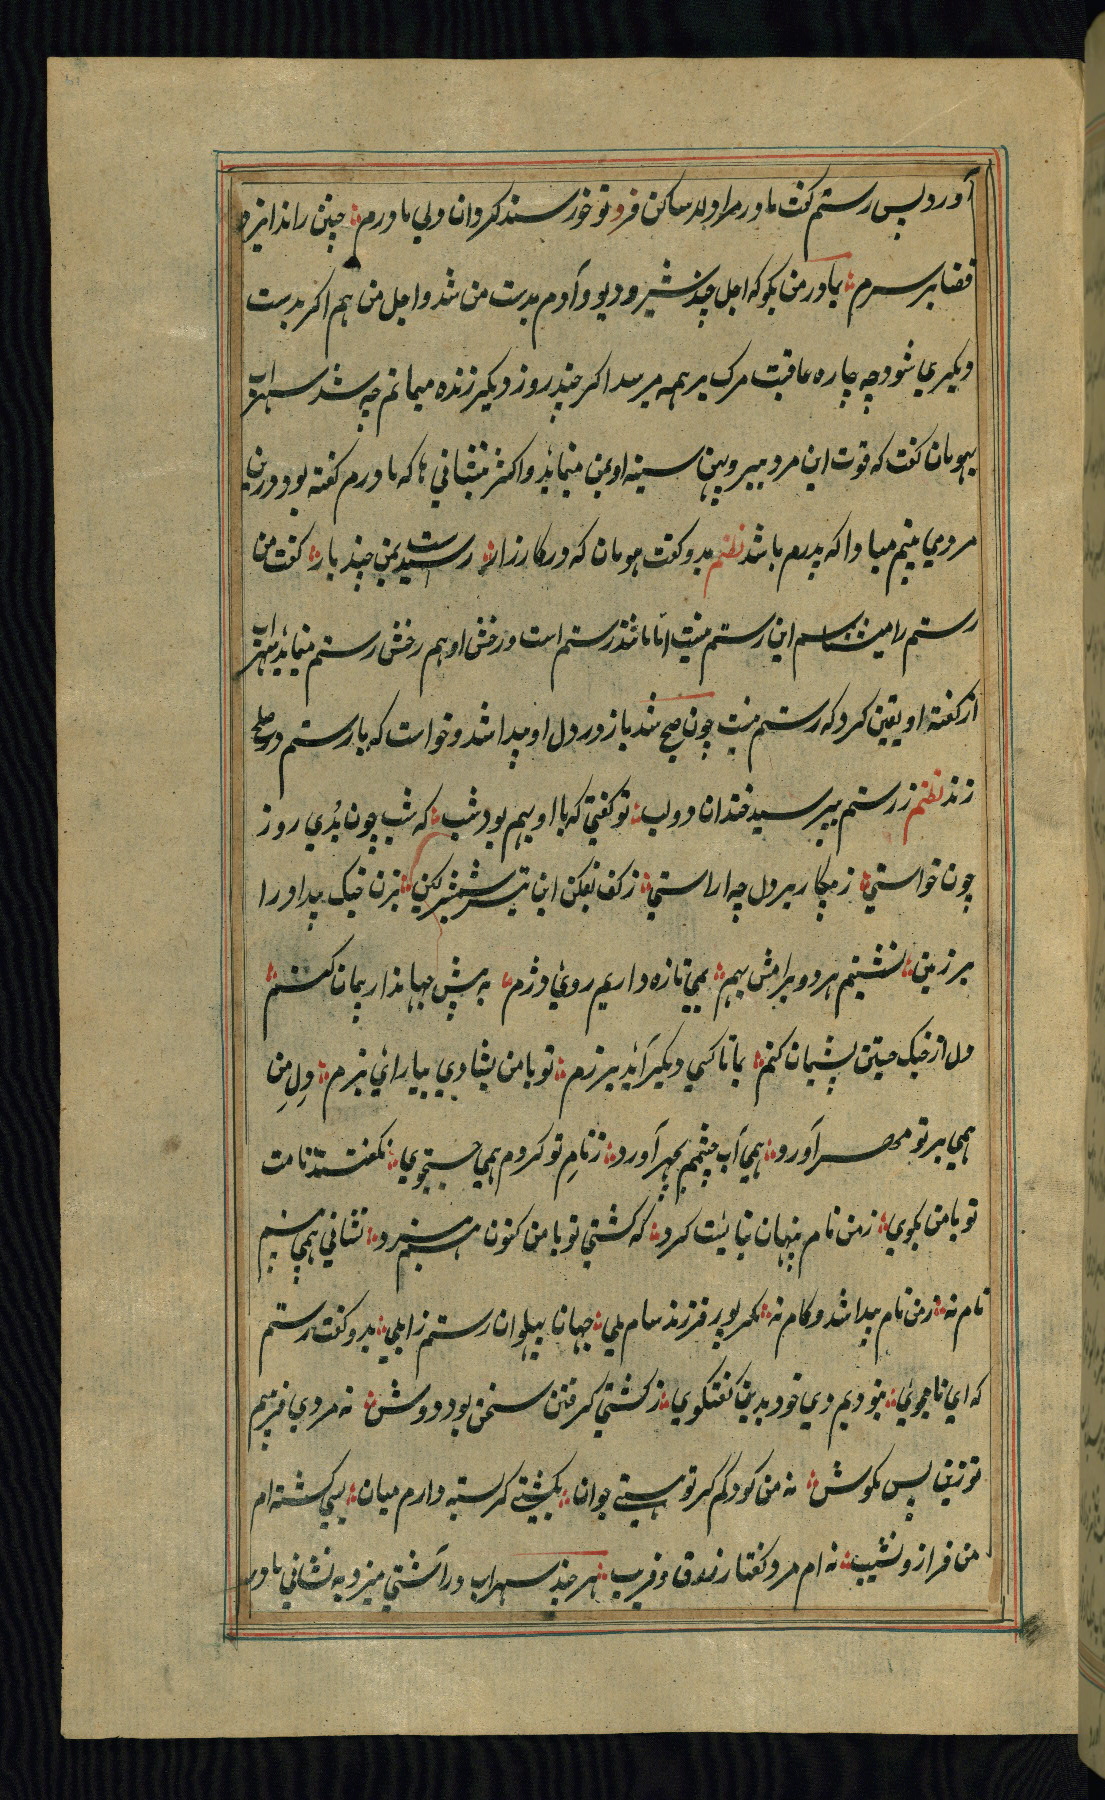 آورد پس رستم گفت مادر مرا دلاسا کن فرد تو خورسند گردان دلی مادرم ؞ چنین راند ایزد
قضا بر سرم ؞ بمادر من بگو که اجل چند شیر و دیو و آدم بدست من شد و اجل من هم اگر بدست
دیگیری شود چه چاره عاقبت مرگ بر همه میرسد اگر چند روز دیگر زنده میمانم چه شد سهراب
بهومان گفت که قوت این مرد پیر و پهن سینه او بمن مینماید و اکثر نشانی ها که مادرم گفته بود درین
مردمی بینم مبادا که پدرم باشد نظم بدو گفت هومان که در کارزار ؞ رسیدست بمن چند بار ؞ گفت من
رستم را میشناسم این رستم نیست اما مانند رستم است و رخش او هم رخش رستم مینماید سهراب
از گفته او یقین کرد که رستم نیست چون صبح شد باز در دل او پیدا شد و خواست که با رستم در صلح
زند نظم ز رستم بپرسید خندان دو لب ؞ تو گفتی که با او بهم بود شب ؞ که شب چون بُدی روز
چون خواستی ؞ ز پیکار بر دل چه اراستی ؞ ز کف بفکن این تیر و شمشیر کین ؞ بزن جنگ بیداد را
بر زمین ؞ نشینیم هر دو برامش بهم ؞ بمی تازه داریم روی دژم ؞ به پیش جهاندار پیمان کنیم ؞
دل از جنگ جستن پشیمان کنیم ؞ بمان تا کسی دیگر آید برزم ؞ تو با من بشادی بیارای بزم ؞ دلِ من
همی بر تو مهر آورد ؞ همی آب چشمم بچهر آورد ؞ ز نامِ تو کردم همی جستجوی ؞ نگفتند نامت
تو با من بگوی ؞ ز من نام پنهان نبایست کرد ؞ که گشتی تو با من کنون هم نبرد ؞ نشانی همی بینم
نام نه ؞ ز من نام پیدا شد و کام نه ؞ مگر پور فرزند سام یلی ؞ جهان پهلوان رستم زابلی ؞ بدو گفت رستم
که ای نامجوی ؞ نبودیم دی خود بدین گفتگوی ؞ ز کشتی گرفتن سخن بود دوش ؞ نه مردی فریبم
تو زین پس بگوش ؞ نه من کودکم گر تو هستی جوان ؞ بکشتی کمر بسته دارم میان ؞ بسی گشته ام
من فراز و نشیب ؞ نه ام مرد گفتار زرق و فریب ؞ هر چند سهراب در آشتی میزد به نشانی مادر